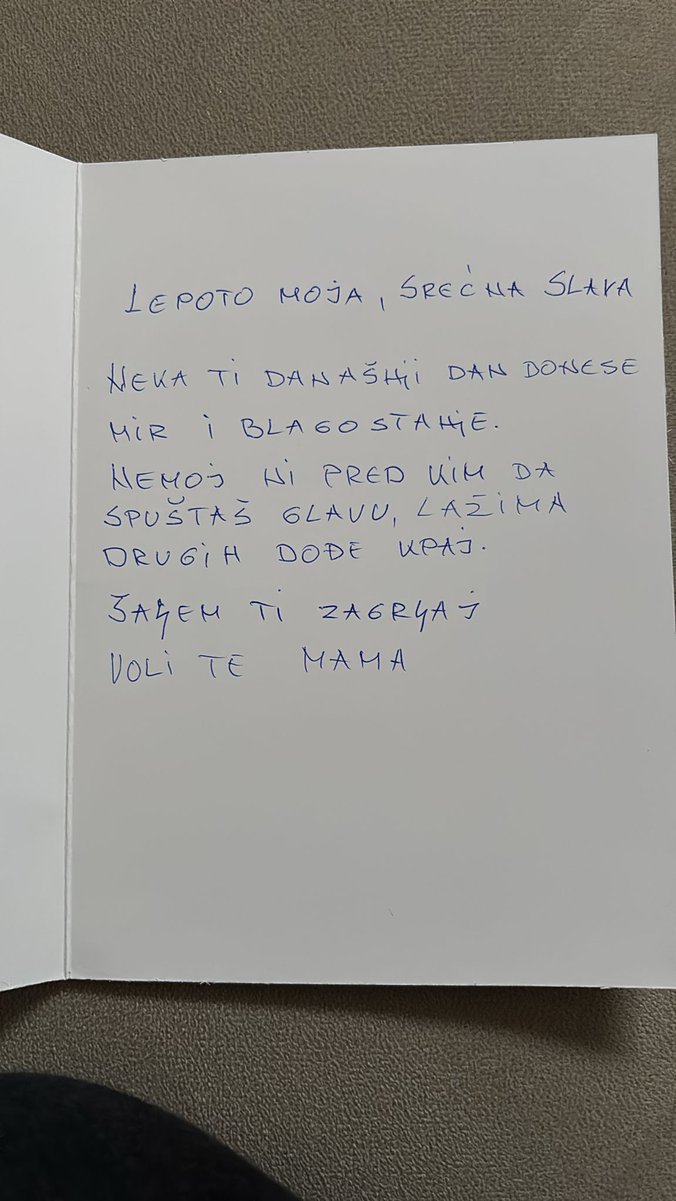 LEPOTO MOJA, SREĆNA SLAVA
NEKA TI DANAŠNJI DAN DONESE
MIR I BLAGOSTANJE.
NEMOJ NI PRED KIM DA
SPUŠTAŠ GLAVU, LAŽIMA
DRUGIH DOĐE KRAJ.
ŠALJEM TI ZAGRLJAJ
VOLI TE MAMA